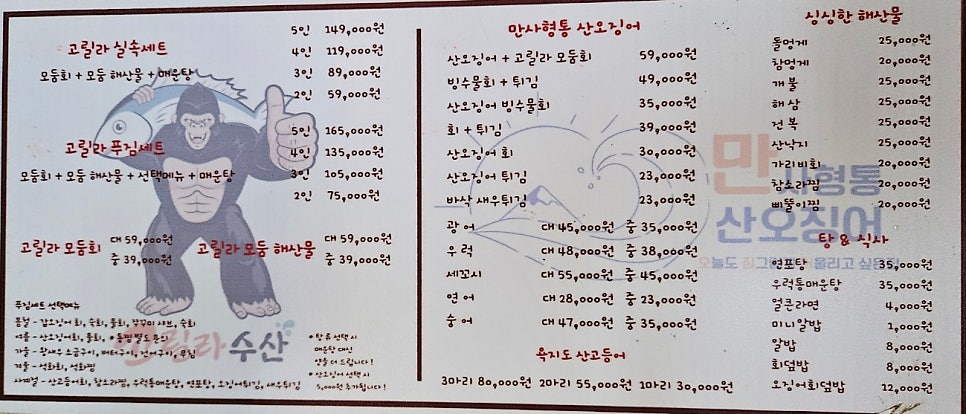 고릴라 실속세트
모둠회 + 모둠 해산물 + 매운탕
5인 149,000원
4인 119,000원
3인 89,000원
2인 59,000원
고릴라 푸짐세트
모둠회 + 모둠 해산물 + 선택메뉴 + 매운탕
5인 165,000원
4인 135,000원
3인 105,000원
2인 75,000원
고릴라 모둠회 대 59,000원
중 39,000원
고릴라 모둠 해산물 대 59,000원
중 39,000원
푸짐세트 선택메뉴
봄철 - 갑오징어 회, 숙회, 물회, 쭈꾸미 샤브, 숙회
여름 - 산오징어회, 물회,
가을 - 왕새우 소금구이, 버터구이, 전어구이, 무침
겨울 - 석화회, 석화찜
사계절 - 산고등어회, 참소라찜, 우럭통매운탕, 연포탕, 오징어튀김, 새우튀김
* 탕류 선택시
매운탕 대신
양을 더 드립니다!
* 산오징어 선택시
5,000원 추가됩니다!
고릴라 수산
만사형통 산오징어
산오징어 + 고릴라 모둠회 59,000원
빙수물회 + 튀김 49,000원
산오징어 빙수물회 35,000원
회 + 튀김 39,000원
산오징어 회 30,000원
산오징어 튀김 23,000원
바삭 새우튀김 23,000원
광어 대 45,000원 중 35,000원
우럭 대 48,000원 중 38,000원
세꼬시 대 55,000원 중 45,000원
연어 대 28,000원 중 23,000원
숭어 대 47,000원 중 35,000원
욕지도 산고등어
3마리 80,000원 2마리 55,000원 1마리 30,000원
싱싱한 해산물
돌멍게 25,000원
참멍게 20,000원
개불 25,000원
해삼 25,000원
전복 25,000원
산낙지 25,000원
가리비회 20,000원
참소라찜 20,000원
삐뚤이찜 20,000원
만사형통
산오징어
탕 & 식사
연포탕 35,000원
우럭통매운탕 35,000원
얼큰라면 4,000원
미니알밥 1,000원
알밥 8,000원
회덮밥 8,000원
오징어회덮밥 12,000원